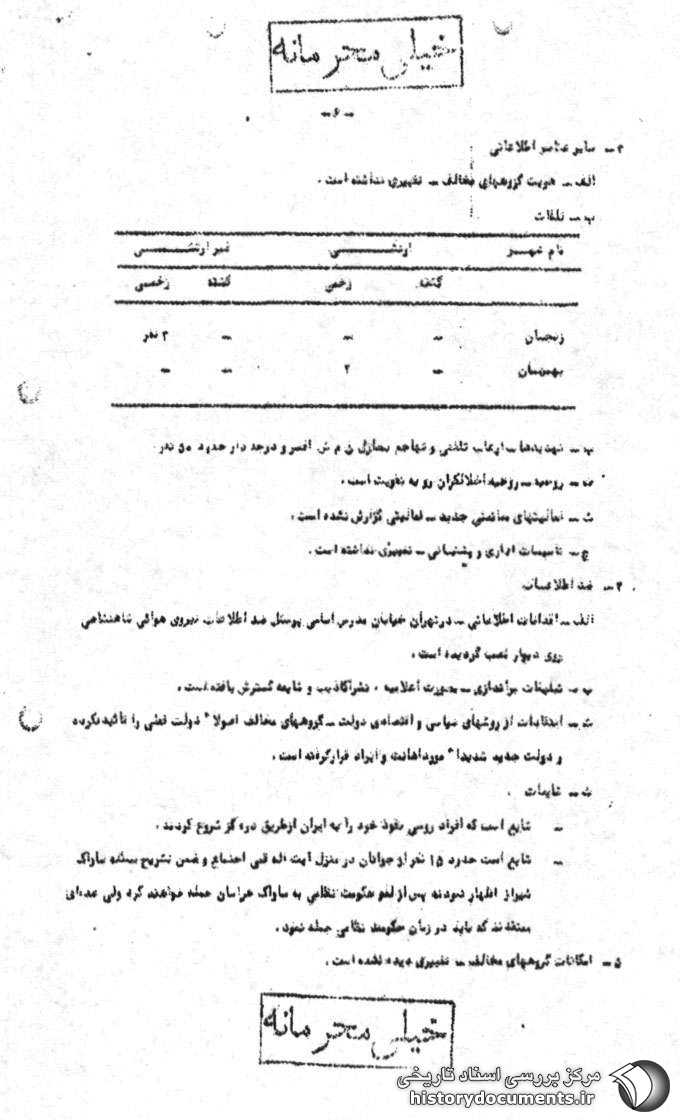 خیلی محرمانه
ـ ۶ ـ
۳ ـ سایر عناصر اطلاعاتی
الف ـ هویت گروههای مخالف ـ تغییری نداشته است .
ب ـ تلفات
نام شهر ارتشی غیر ارتشی
کشته زخمی کشته زخمی
زنجان ـ ـ ـ ۳ نفر
بهبهان ـ ۲ ـ ـ
ب ـ تهدیدها ـ ارعاب تلفنی و تهاجم بمنازل افسر و درجه دار حدود ۵۰ نفر
ت ـ روحیه ـ روحیه اخلالگران رو به تقویت است .
ث ـ فعالیتهای جدید ـ فعالیتی گزارش نشده است .
ج ـ تأسیسات اداری و پشتیبانی ـ تغییری نداشته است .
۴ ـ ضد اطلاعات
الف ـ اقدامات اطلاعاتی ـ در تهران خیابان مدرس اسامی پرسنل ضد اطلاعات نیروی هوائی شاهنشاهی
روی دیوار نصب گردیده است .
ب ـ تبلیغات براندازی ـ بصورت اعلامیه ، نشر اکاذیب و شایعه گسترش یافته است .
ث ـ انتقادات از روشهای سیاسی و اقتصادی دولت ـ گروههای مخالف اصولا" دولت فعلی را تأئید نکرده
و دولت جدید شدیدا" مورد اهانت و ایراد قرار گرفته است .
ث ـ شایعات .
ـ شایع است که افراد روسی نفوذ خود را به ایران از طریق دره گز شروع کردند .
ـ شایع است حدود ۱۵ نفر از جوانان در منزل آیت اله قمی اجتماع و ضمن تشریح مسئله ساواک
شیراز اظهار نمودند پس از لغو حکومت نظامی به ساواک خراسان حمله خواهند کرد ولی عده‌ای
معتقدند که باید در زمان حکومت نظامی حمله نمود .
۵ ـ امکانات گروههای مخالف ـ تغییری دیده نشده است .
خیلی محرمانه
مرکز بررسی اسناد تاریخی
historydocuments.ir